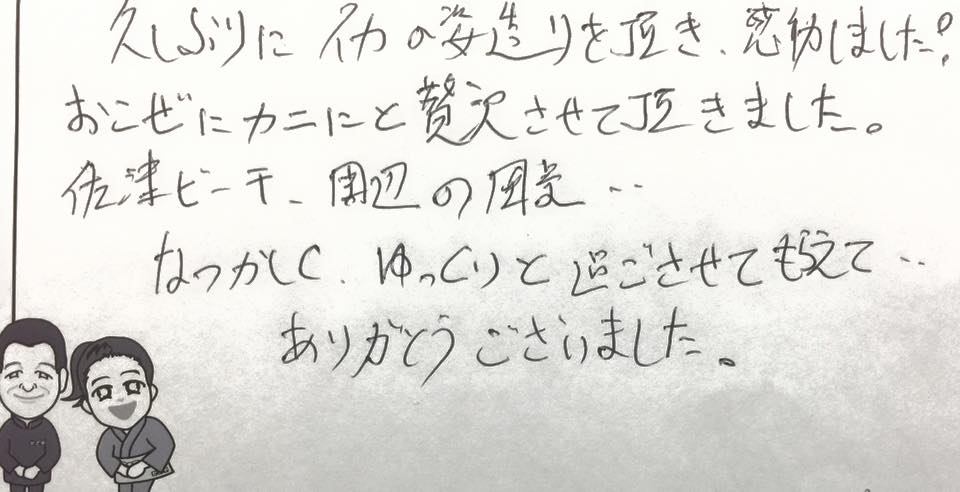 久しぶりに イカの姿造りを頂き、感動しました!
おこぜにカニにと贅沢させて頂きました。
佐津ビーチ、周辺の風景‥
なつかしく、ゆっくりと過ごさせてもらえて‥
ありがとうございました。